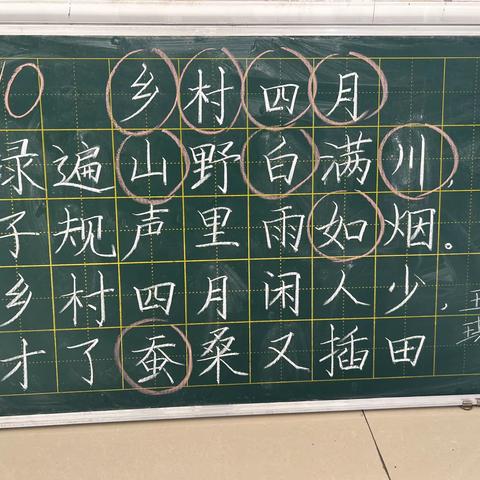 10 乡村四月
绿遍山野白满川,
子规声里雨如烟。
乡村四月闲人少,
才了蚕桑又插田